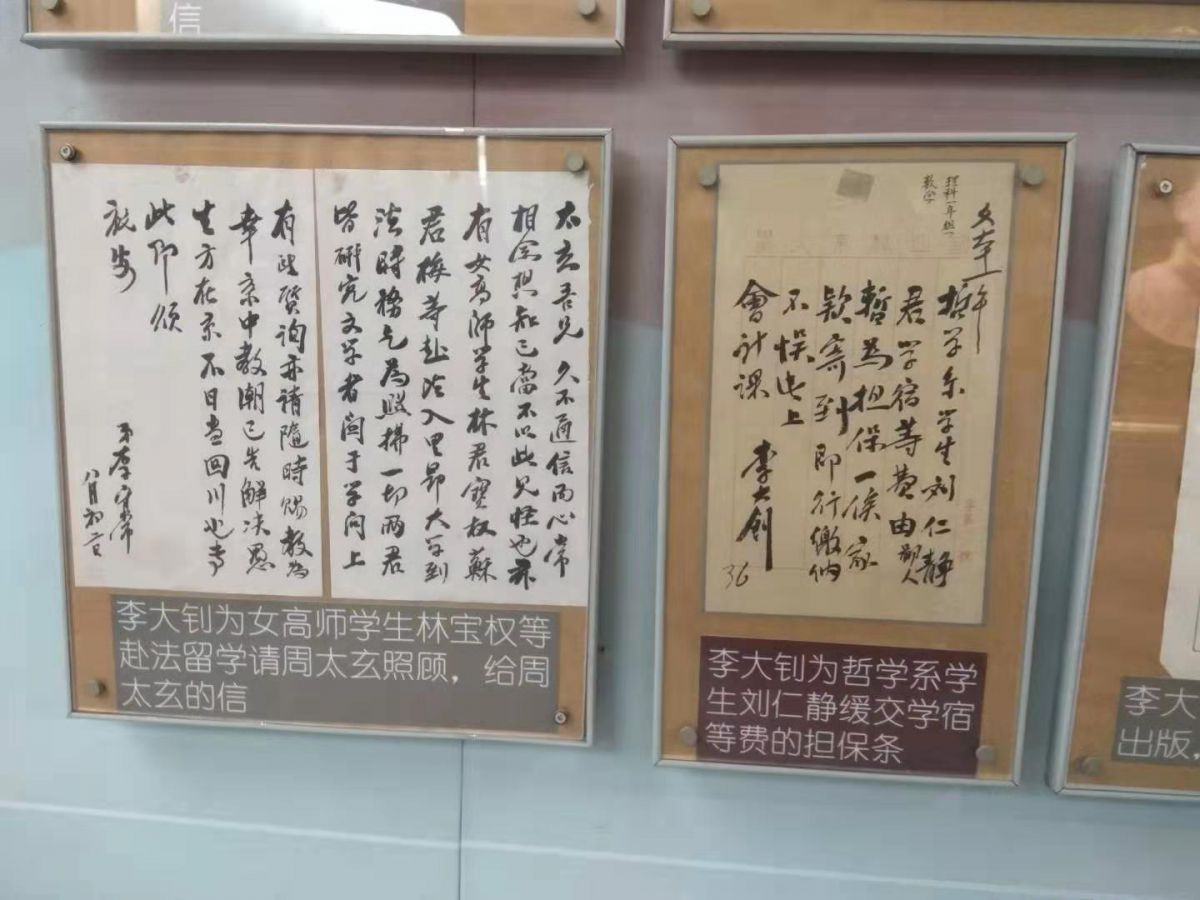 信
太玄吾兄 久不通信而心常
相念想知己當不以此見怪也 茲
有女高師学生林君寶权蘇
君梅等赴法入里昂大学到
法時務乞為照拂一切两君
皆研究文学者関于学问上
有所質询亦请隨時赐教為
幸京中教潮已先解决愚
生方在京不日当回川也专
此即颂
旅安
弟李守常
八月初二日
李大钊为女高师学生林宝权等
赴法留学请周太玄照顾，给周
太玄的信
理科一年级
数学
哲学系学生刘仁静
君学宿等费由鄙人
暫为担保一俟家
款寄到即行缴纳
不悮此上
會计課
李大钊
36
李大钊为哲学系学
生刘仁静缓交学宿
等费的担保条
李大
出版，